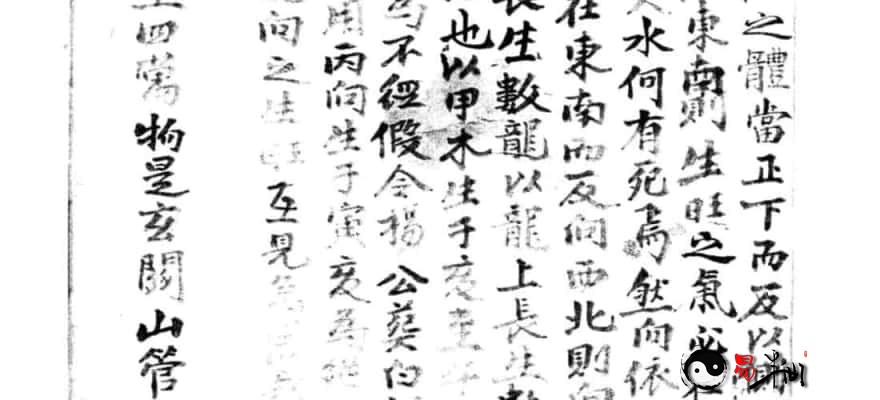 之體當正下而反以
東南則生旺之氣必
水何有死焉然向依
在東南而反向西北則向
長生數龍以龍上長生數
也以甲木生于亥至午
焉不經假令楊公葵向
用丙向生于寅亥為絕
向之生旺互見為
四萬物是玄關山管